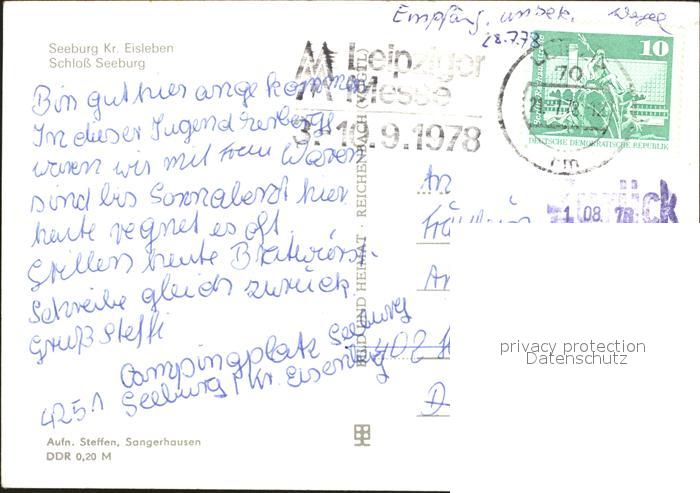 Empfäng. unbek.
28.7.78
Seeburg Kr. Eisleben
Schloß Seeburg
Leipziger
Messe
3.-10.9.1978
10
70
DEUTSCHE DEMOKRATISCHE REPUBLIK
Zurück
1. 08. 78
Bin gut hier angekommen
In dieser Jugendherberge
waren wir mit Frau
sind bis Sonnabend hier
heute regnet es oft.
Grillen heute Bratwürs.
Schreibe gleich zurück
Gruß Steffi
Campingplatz Seeburg
4251 Seeburg / Kr. Eisenberg
An
Fräulein
402 H
BILD UND HEIMAT · REICHENBACH
privacy protection
Datenschutz
Aufn. Steffen, Sangerhausen
DDR 0,20 M